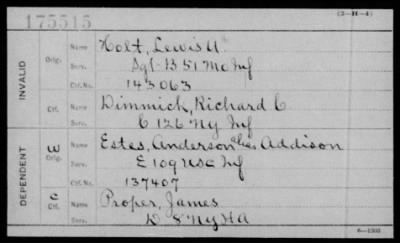 175515
(3-H-4)
INVALID
Orig.
Name Holt, Lewis A
Serv. Sgt. B 51 Mo Inf
Ctf. No. 143063
Ctf.
Name Dimmick, Richard C.
Serv. C 126 Ny Inf
DEPENDENT
W
Orig.
Name Estes, Anderson alias Addison
Serv. E 109 USC Inf
Ctf. No. 137407
C
Ctf.
Name Proper, James
Serv. D 8" Ny HA